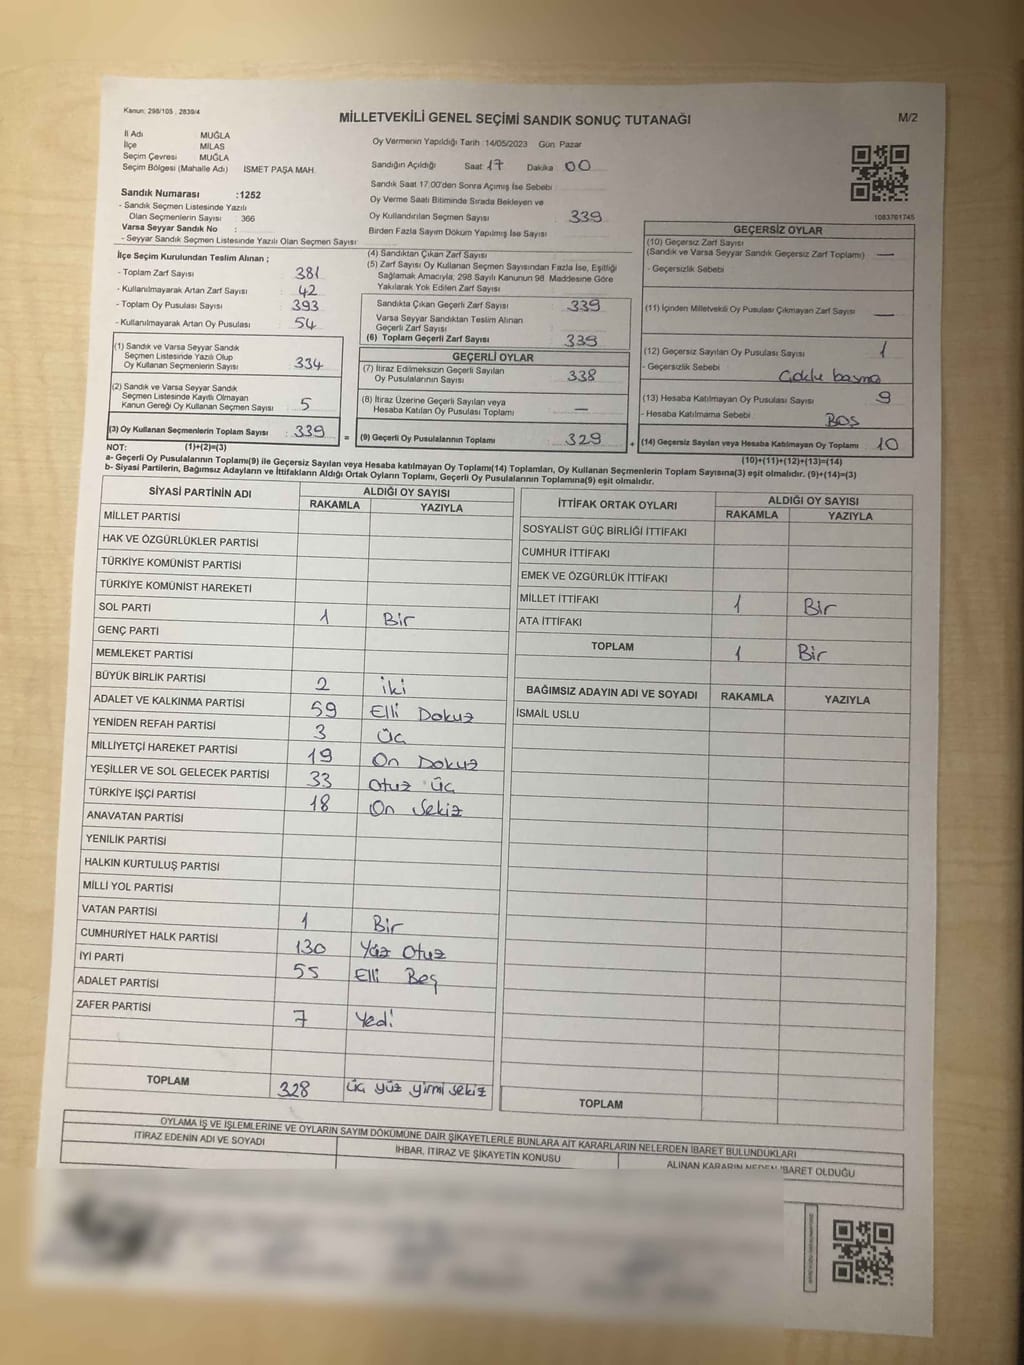 Kanun: 298/105 , 2839/4
MİLLETVEKİLİ GENEL SEÇİMİ SANDIK SONUÇ TUTANAĞI
M/2
İl Adı MUĞLA
İlçe MİLAS
Seçim Çevresi MUĞLA
Seçim Bölgesi (Mahalle Adı) İSMET PAŞA MAH.
Oy Vermenin Yapıldığı Tarih 14/05/2023 Gün Pazar
Sandığın Açıldığı Saat 17 Dakika 00
Sandık Saat 17.00'den Sonra Açılmış İse Sebebi
Oy Verme Saati Bitiminde Sırada Bekleyen ve
Oy Kullandırılan Seçmen Sayısı 339
Birden Fazla Sayım Döküm Yapılmış İse Sayısı
Sandık Numarası :1252
- Sandık Seçmen Listesinde Yazılı
Olan Seçmenlerin Sayısı : 366
Varsa Seyyar Sandık No :
- Seyyar Sandık Seçmen Listesinde Yazılı Olan Seçmen Sayısı
İlçe Seçim Kurulundan Teslim Alınan ;
- Toplam Zarf Sayısı 381
- Kullanılmayarak Artan Zarf Sayısı 42
- Toplam Oy Pusulası Sayısı 393
- Kullanılmayarak Artan Oy Pusulası 54
(1) Sandık ve Varsa Seyyar Sandık
Seçmen Listesinde Yazılı Olup
Oy Kullanan Seçmenlerin Sayısı 334
(2) Sandık ve Varsa Seyyar Sandık
Seçmen Listesinde Kayıtlı Olmayan
Kanun Gereği Oy Kullanan Seçmen Sayısı 5
(3) Oy Kullanan Seçmenlerin Toplam Sayısı : 339 =
(4) Sandıktan Çıkan Zarf Sayısı
(5) Zarf Sayısı Oy Kullanan Seçmen Sayısından Fazla İse, Eşitliği
Sağlamak Amacıyla, 298 Sayılı Kanunun 98. Maddesine Göre
Yakılarak Yok Edilen Zarf Sayısı
Sandıkta Çıkan Geçerli Zarf Sayısı 339
Varsa Seyyar Sandıktan Teslim Alınan
Geçerli Zarf Sayısı
(6) Toplam Geçerli Zarf Sayısı 339
GEÇERLİ OYLAR
(7) İtiraz Edilmeksizin Geçerli Sayılan
Oy Pusulalarının Sayısı 338
(8) İtiraz Üzerine Geçerli Sayılan veya
Hesaba Katılan Oy Pusulası Toplamı —
(9) Geçerli Oy Pusulalarının Toplamı 329 +
1083761745
GEÇERSİZ OYLAR
(10) Geçersiz Zarf Sayısı
(Sandık ve Varsa Seyyar Sandık Geçersiz Zarf Toplamı) —
- Geçersizlik Sebebi
(11) İçinden Milletvekili Oy Pusulası Çıkmayan Zarf Sayısı —
(12) Geçersiz Sayılan Oy Pusulası Sayısı 1
- Geçersizlik Sebebi
(13) Hesaba Katılmayan Oy Pusulası Sayısı 9
- Hesaba Katılmama Sebebi BOŞ
(14) Geçersiz Sayılan veya Hesaba Katılmayan Oy Toplamı 10
NOT: (1)+(2)=(3) (10)+(11)+(12)+(13)=(14)
a- Geçerli Oy Pusulalarının Toplamı(9) ile Geçersiz Sayılan veya Hesaba katılmayan Oy Toplamı(14) Toplamları, Oy Kullanan Seçmenlerin Toplam Sayısına(3) eşit olmalıdır. (9)+(14)=(3)
b- Siyasi Partilerin, Bağımsız Adayların ve İttifakların Aldığı Ortak Oyların Toplamı, Geçerli Oy Pusulalarının Toplamına(9) eşit olmalıdır.
SİYASİ PARTİNİN ADI ALDIĞI OY SAYISI
RAKAMLA YAZIYLA
MİLLET PARTİSİ
HAK VE ÖZGÜRLÜKLER PARTİSİ
TÜRKİYE KOMÜNİST PARTİSİ
TÜRKİYE KOMÜNİST HAREKETİ
SOL PARTİ 1 Bir
GENÇ PARTİ
MEMLEKET PARTİSİ
BÜYÜK BİRLİK PARTİSİ 2 iki
ADALET VE KALKINMA PARTİSİ 59 Elli Dokuz
YENİDEN REFAH PARTİSİ 3 Üç
MİLLİYETÇİ HAREKET PARTİSİ 19 On Dokuz
YEŞİLLER VE SOL GELECEK PARTİSİ 33 Otuz Üç
TÜRKİYE İŞÇİ PARTİSİ 18 On Sekiz
ANAVATAN PARTİSİ
YENİLİK PARTİSİ
HALKIN KURTULUŞ PARTİSİ
MİLLİ YOL PARTİSİ
VATAN PARTİSİ 1 Bir
CUMHURİYET HALK PARTİSİ 130 Yüz Otuz
İYİ PARTİ 55 Elli Beş
ADALET PARTİSİ
ZAFER PARTİSİ 7 Yedi
TOPLAM 328 üç yüz yirmi sekiz
İTTİFAK ORTAK OYLARI ALDIĞI OY SAYISI
RAKAMLA YAZIYLA
SOSYALİST GÜÇ BİRLİĞİ İTTİFAKI
CUMHUR İTTİFAKI
EMEK VE ÖZGÜRLÜK İTTİFAKI
MİLLET İTTİFAKI 1 Bir
ATA İTTİFAKI
TOPLAM 1 Bir
BAĞIMSIZ ADAYIN ADI VE SOYADI RAKAMLA YAZIYLA
İSMAİL USLU
TOPLAM
OYLAMA İŞ VE İŞLEMLERİNE VE OYLARIN SAYIM DÖKÜMÜNE DAİR ŞİKAYETLERLE BUNLARA AİT KARARLARIN NELERDEN İBARET BULUNDUKLARI
İTİRAZ EDENİN ADI VE SOYADI İHBAR, İTİRAZ VE ŞİKAYETİN KONUSU ALINAN KARARIN NEDEN İBARET OLDUĞU